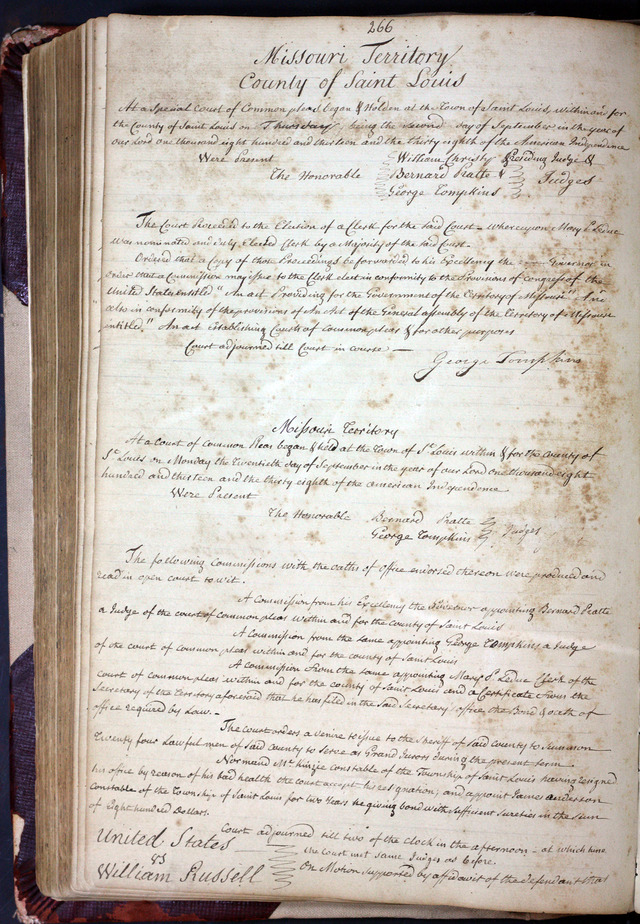 266
Missouri Territory
County of Saint Louis
At a Special Court of Common pleas began & Holden at the Town of Saint Louis, within and for
the County of Saint Louis on Thursday, being the second day of September in the year of
our Lord one thousand eight hundred and thirteen and the thirty eighth of the American Independence
Were Present William Christy Presiding Judge &
The Honorable Bernard Pratte & Judges
George Tompkins
The Court Proceeded to the Election of a Clerk for the said Court - whereupon Mary P. Leduc
was nominated and duly Elected Clerk by a Majority of the said Court -
Ordered that a Copy of these Proceedings be forwarded to his Excellency the Governor in
order that a Commission may issue to the Clerk elect in conformity to the Provisions of Congress of the
United States entitled "An act Providing for the Government of the Territory of Missouri" And
also in conformity of the provisions of An Act of the General assembly of the Territory of Missouri
entitled, "An act establishing Courts of Common pleas & for other purposes
Court adjourned till Court in course -
George Tompkins
Missouri Territory
At a Court of Common Pleas began & held at the Town of St Louis within & for the County of
St Louis on Monday the Twentieth day of September in the year of our Lord one thousand eight
hundred and thirteen and the thirty eighth of the american Independence
Were Present
The Honorable Bernard Pratte
George Tompkins Judges
The following Commissions with the oaths of office endorsed thereon were produced and
read in open court to wit.
A Commission from his Excellency the Governor appointing Bernard Pratte
a Judge of the court of common pleas within and for the county of Saint Louis
A Commission from the same appointing George Tompkins a Judge
of the court of common pleas within and for the county of Saint Louis
A Commission From the same appointing Mary P. Leduc Clerk of the
court of common pleas within and for the county of Saint Louis and a Certificate from the
Secretary of the Territory aforesaid that he has filed in the said Secretary's office, the Bond & oath of
office required by Law -
The court orders a venire to issue to the Sheriff of said county to summon
Twenty four Lawful men of said county to serve as Grand Jurors during the present term
Normand McKinzie constable of the Township of Saint Louis having resigned
his office by reason of his bad health the court accept his resignation; and appoint James anderson
constable of the Township of Saint Louis for two Years he giving bond with sufficient sureties in the sum
of Eight hundred Dollars.
Court adjourned till two of the clock in the afternoon - at which time
United States the court met Same Judges as before.
vs
William Russell On Motion supported by affidavit of the defendant that